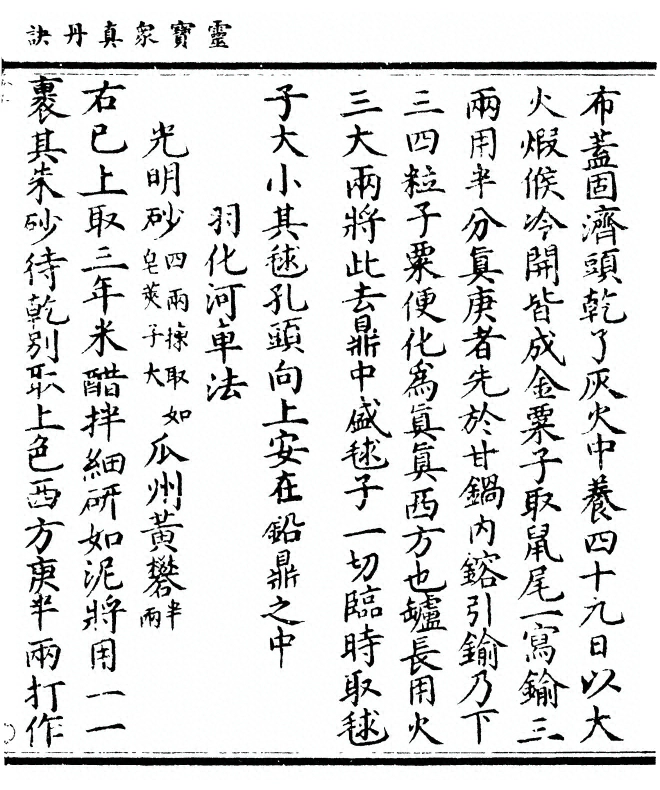 靈寶衆真丹訣
布蓋固濟頭乾了灰火中養四十九日以大
火煆候冷開皆成金粟子取鼠尾一寫鍮三
兩用半分眞庚者先於甘鍋內鎔引鍮乃下
三四粒子粟便化爲眞眞西方也罏長用火
三大兩將此去鼎中盛毬子一切臨時取毬
子大小其毬孔頭向上安在鉛鼎之中
羽化河車法
光明砂四兩揀取如皂莢子大瓜州黃礬半兩
右已上取三年米醋拌細研如泥將用一一
裹其朱砂待乾別取上色西方庚半兩打作